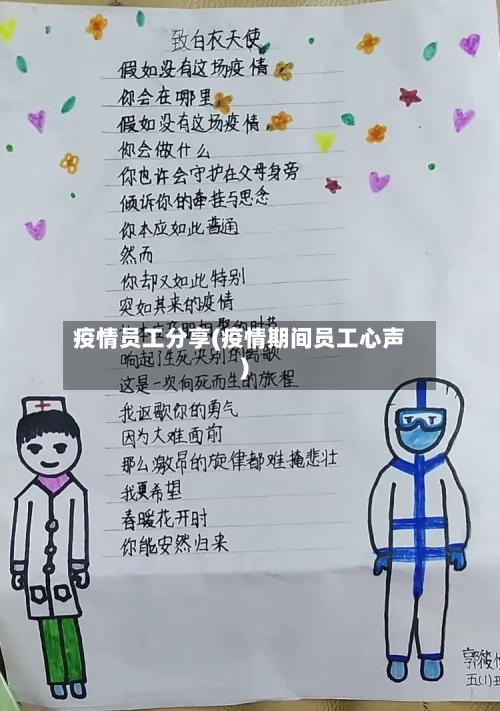 致白衣天使
假如没有这场疫情
你会在哪里
假如没有这场疫情
你会做什么
你也许会守护在父母身旁
倾诉你的牵挂与思念
你本应如此普通
然而
你却又如此特别
突如其来的疫情
疫情员工分享(疫情期间员工心声
)
响起了生死决别的离歌
这是一次向死而生的旅程
我讴歌你的勇气
因为大难面前
那么激昂的旋律都难掩悲壮
我更希望
春暖花开时
你能安然归来
五(1)